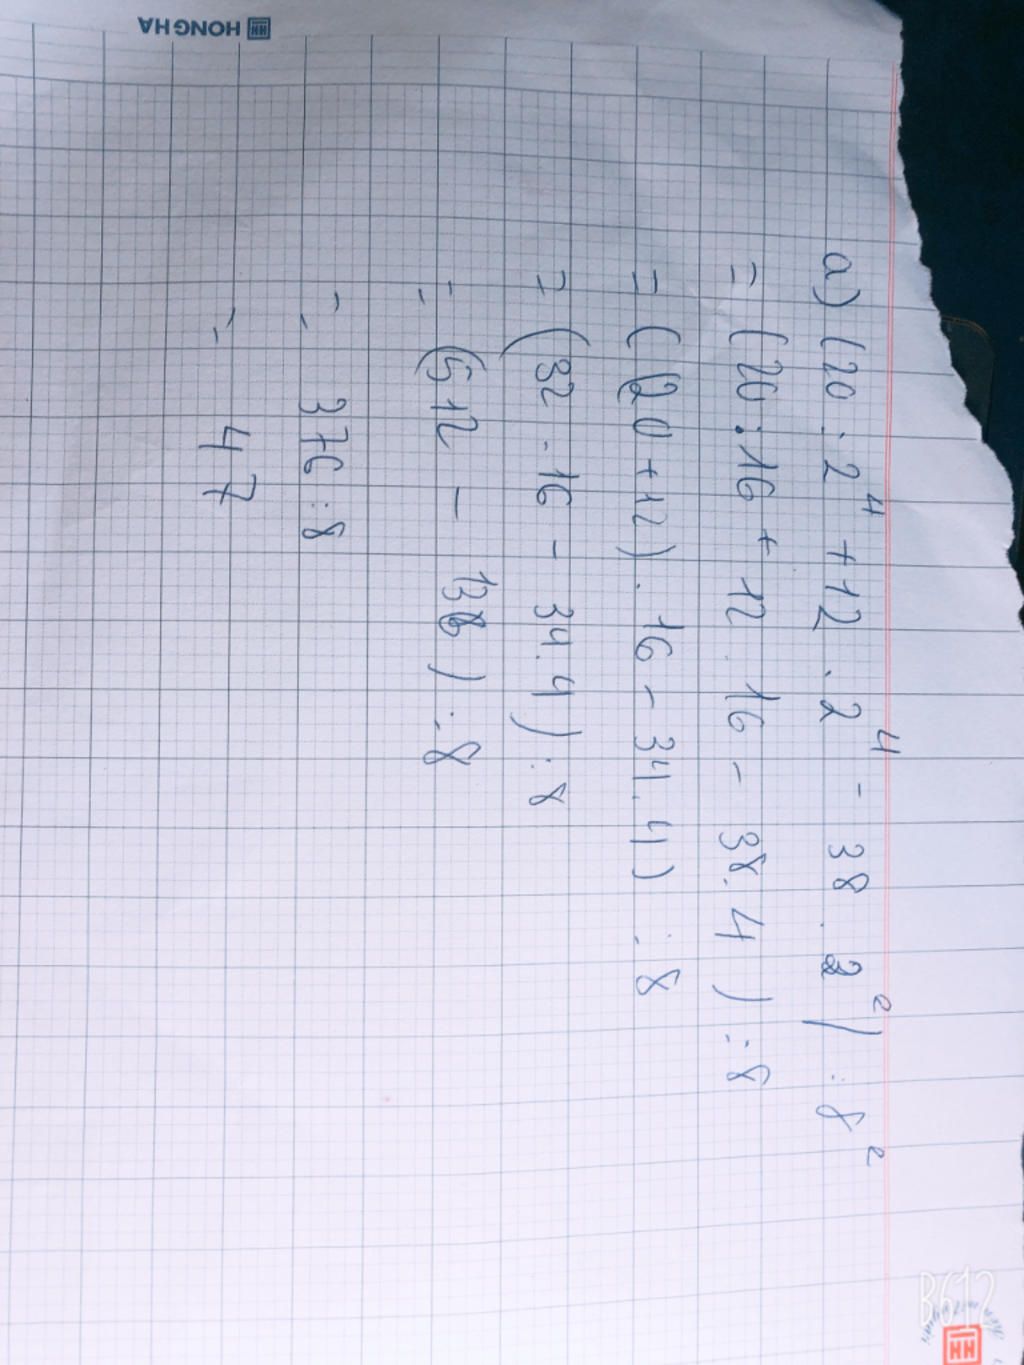 HONG HA
a) (20 : 2⁴ + 12 . 2⁴ - 38 . 2²) : 8²
= (20 : 16 + 12 . 16 - 38 . 4) : 8
= (20 + 12) . 16 - 34 . 4) : 8
= (32 . 16 - 34 . 4) : 8
= (512 - 136) : 8
= 376 : 8
= 47
B612